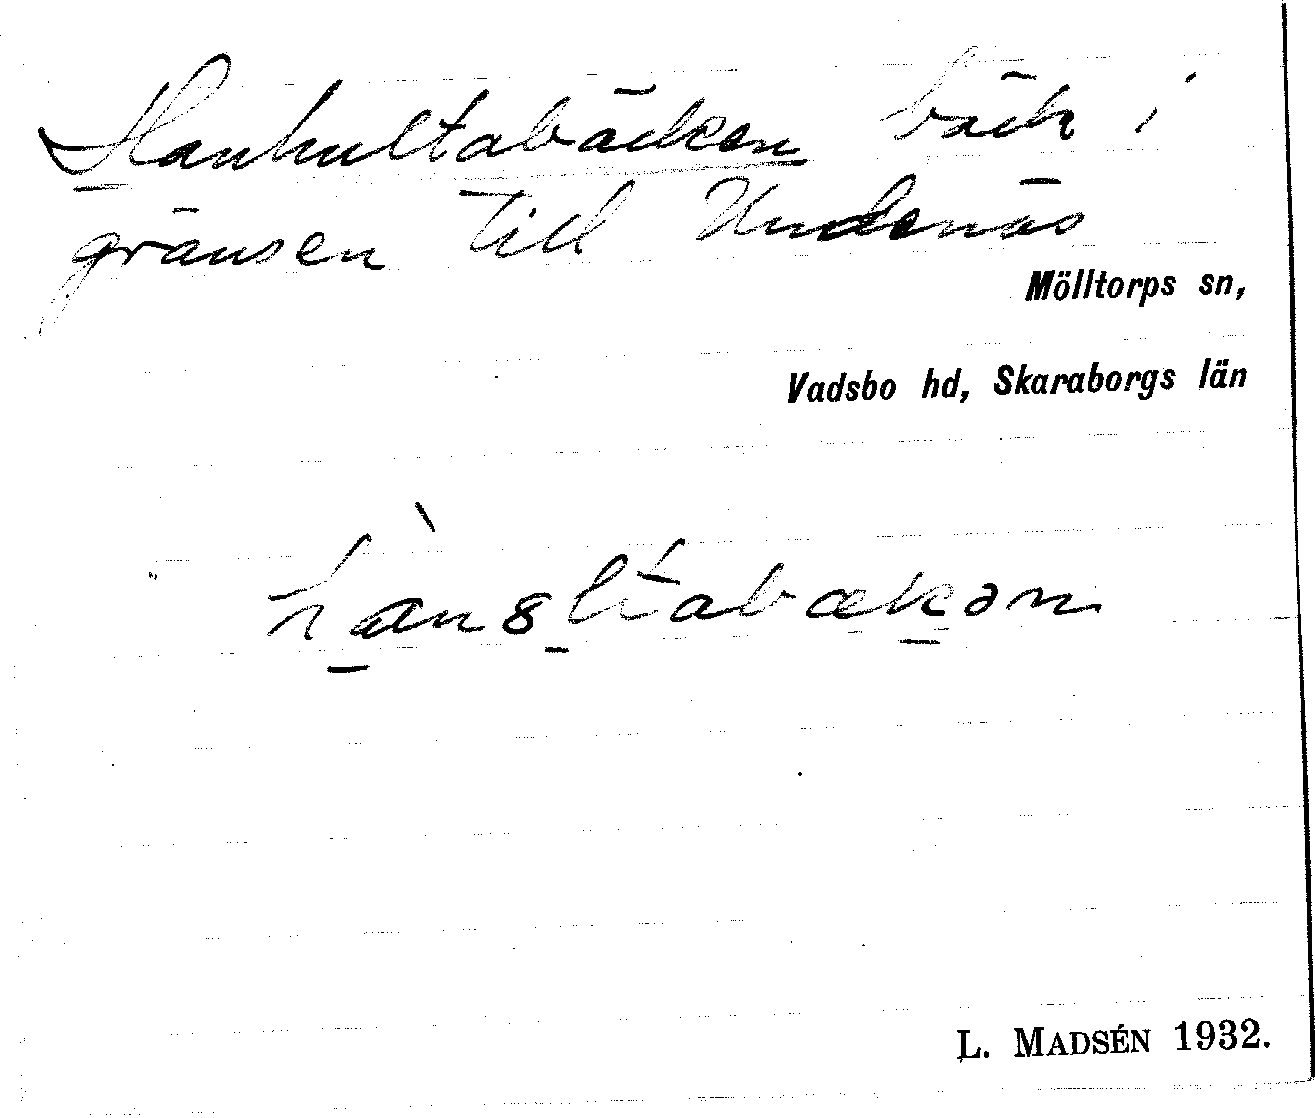 Hanhultabäcken bäck i
gränsen till Undenäs
Mölltorps sn,
Vadsbo hd, Skaraborgs län
L. MADSÉN 1932.